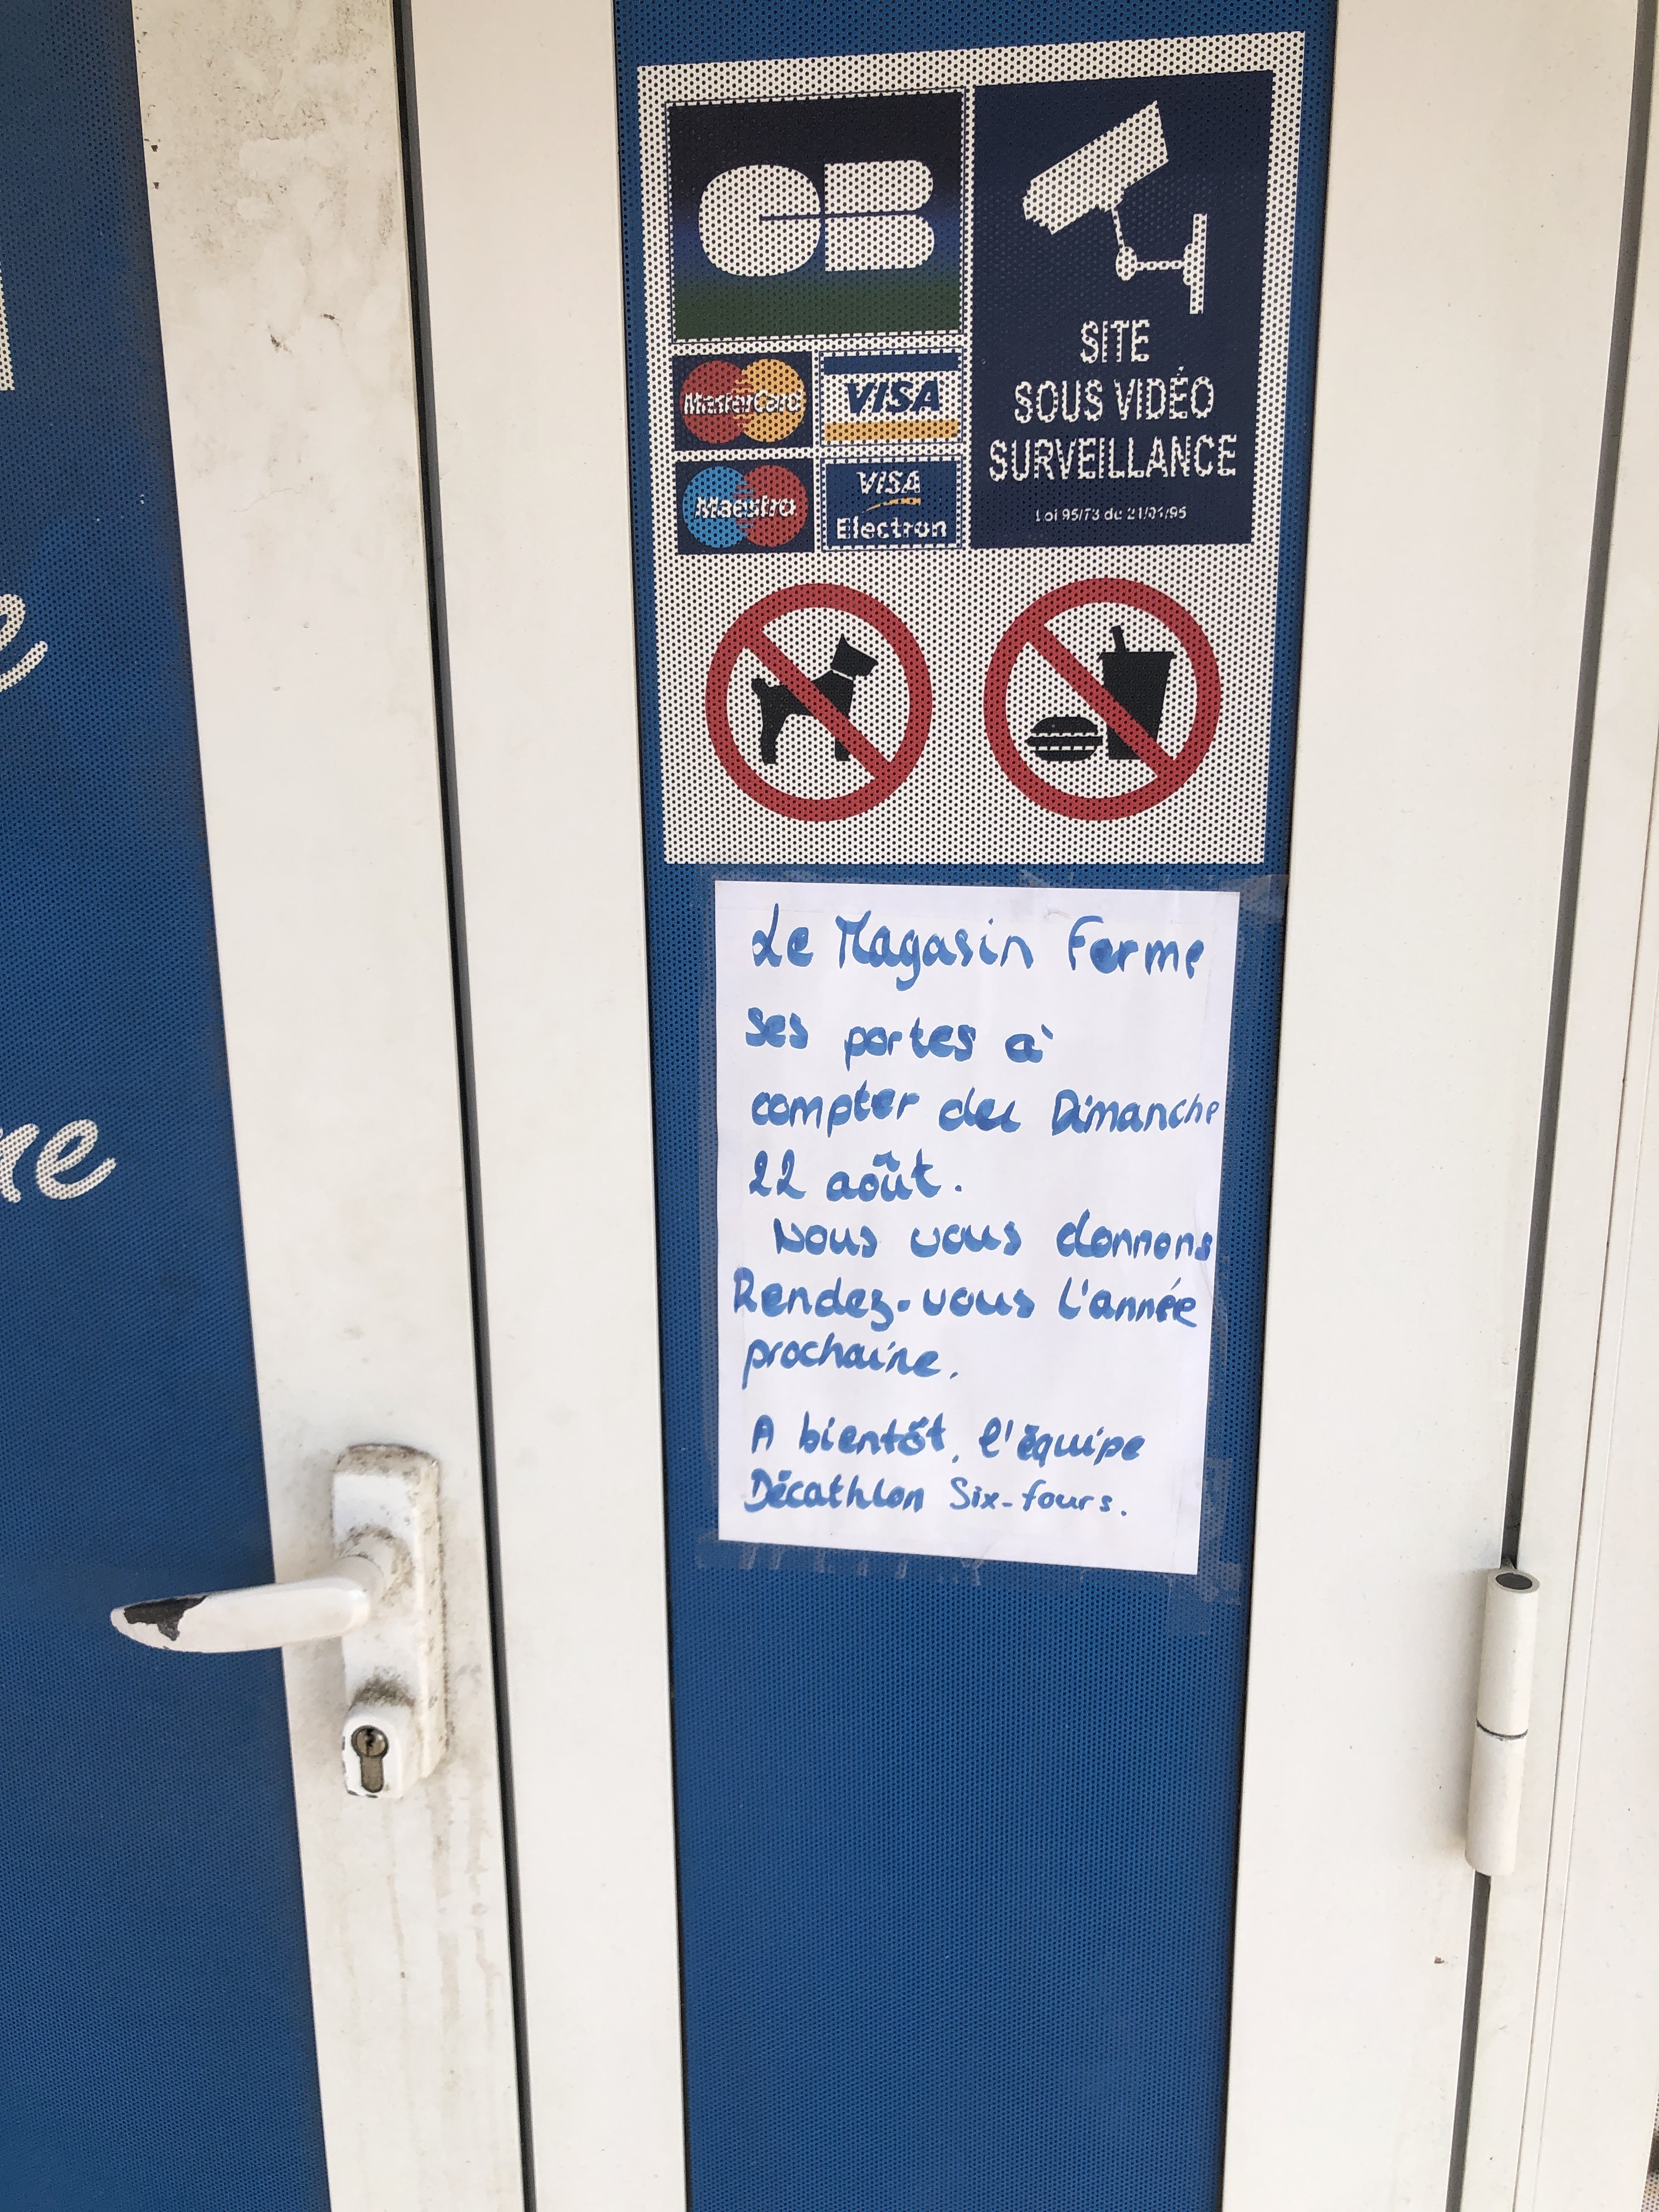 CB
MasterCard
VISA
Maestro
VISA
Electron
SITE
SOUS VIDÉO
SURVEILLANCE
Loi 95/73 du 21/01/95
Le Magasin Ferme
ses portes à
compter du Dimanche
22 août.
Nous vous donnons
Rendez-vous l'année
prochaine.
A bientôt, l'équipe
Décathlon Six-fours.